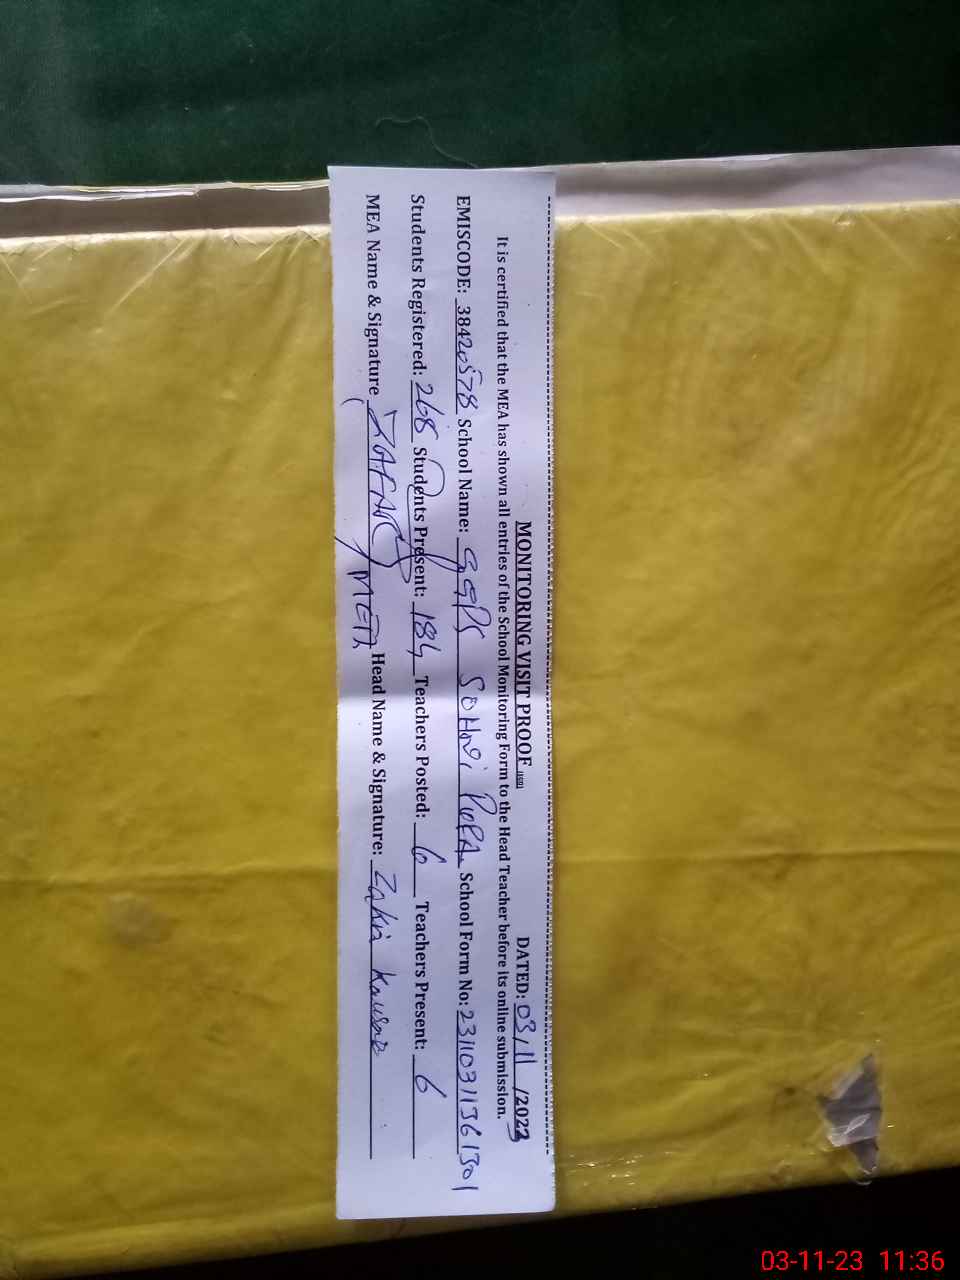 MONITORING VISIT PROOF DATED: 03/11/2023
It is certified that the MEA has shown all entries of the School Monitoring Form to the Head Teacher before its online submission.
EMISCODE: 38420578 School Name: GGPS SOHNi PURA School Form No: 23110311361301
Students Registered: 268 Students Present: 184 Teachers Posted: 6 Teachers Present: 6
MEA Name & Signature ZAFAR MEA Head Name & Signature: Zakia Kausar
03-11-23 11:36